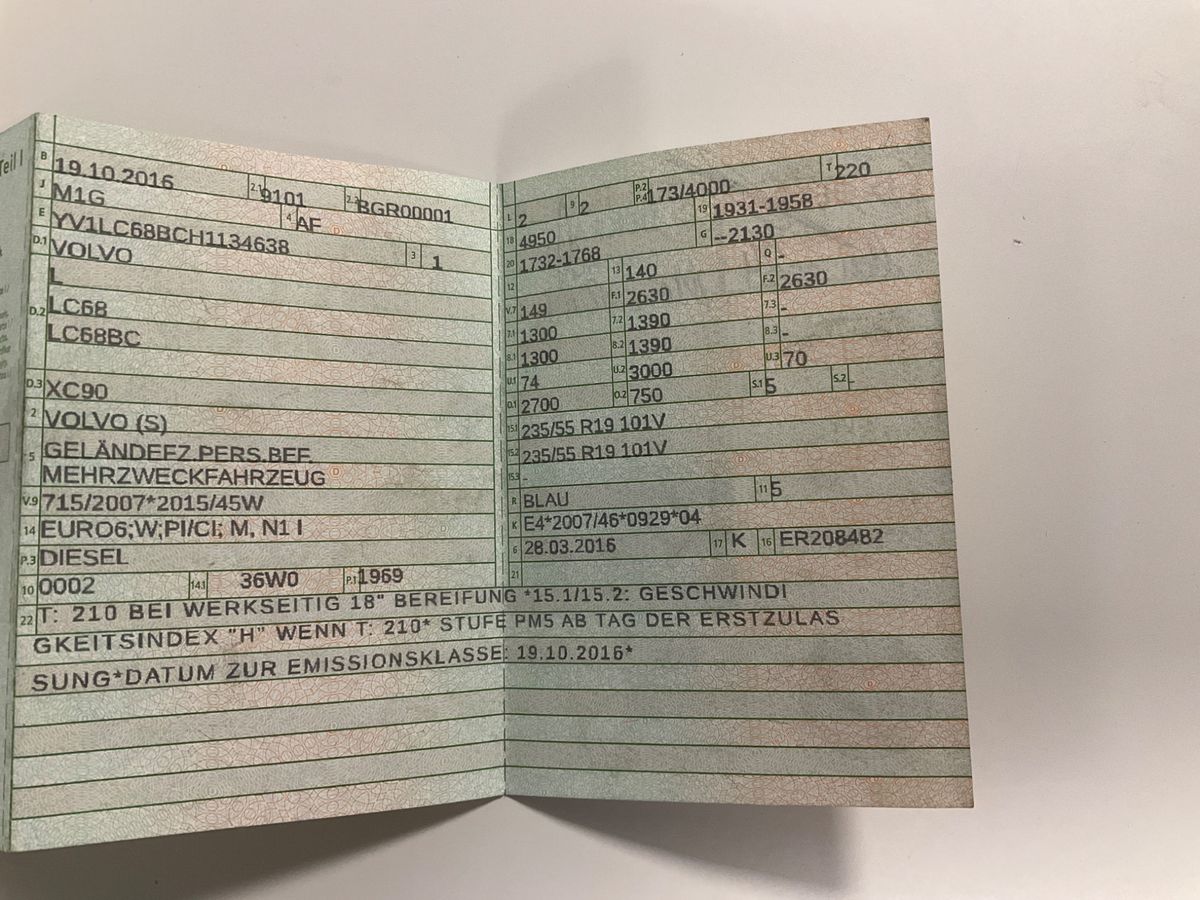 Teil I
B 19.10.2016 2.1 9101 2.2 BGR00001
J M1G 4 AF
E YV1LC68BCH1134638 3 1
D.1 VOLVO
L
D.2 LC68
LC68BC
D.3 XC90
2 VOLVO (S)
5 GELÄNDEFZ.PERS.BEF.
MEHRZWECKFAHRZEUG
V.9 715/2007*2015/45W
14 EURO6;W;PI/CI; M, N1 I
P.3 DIESEL
10 0002 14.1 36W0 P.1 1969
L 2 9 2 P.2 P.4 173/4000 T 220
18 4950 19 1931-1958
20 1732-1768 G --2130
12 13 140 Q -
V.7 149 F.1 2630 F.2 2630
7.1 1300 7.2 1390 7.3 -
8.1 1300 8.2 1390 8.3 -
U.1 74 U.2 3000 U.3 70
O.1 2700 O.2 750 S.1 5 S.2 -
15.1 235/55 R19 101V
15.2 235/55 R19 101V
15.3 -
R BLAU 11 5
K E4*2007/46*0929*04
6 28.03.2016 17 K 16 ER208482
21
22 T: 210 BEI WERKSEITIG 18" BEREIFUNG *15.1/15.2: GESCHWINDI
GKEITSINDEX "H" WENN T: 210* STUFE PM5 AB TAG DER ERSTZULAS
SUNG*DATUM ZUR EMISSIONSKLASSE: 19.10.2016*